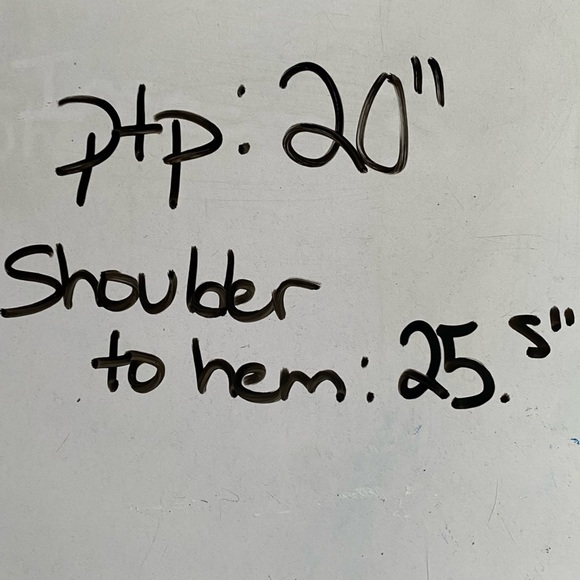 ptp: 20"
Shoulder
to hem: 25.5"